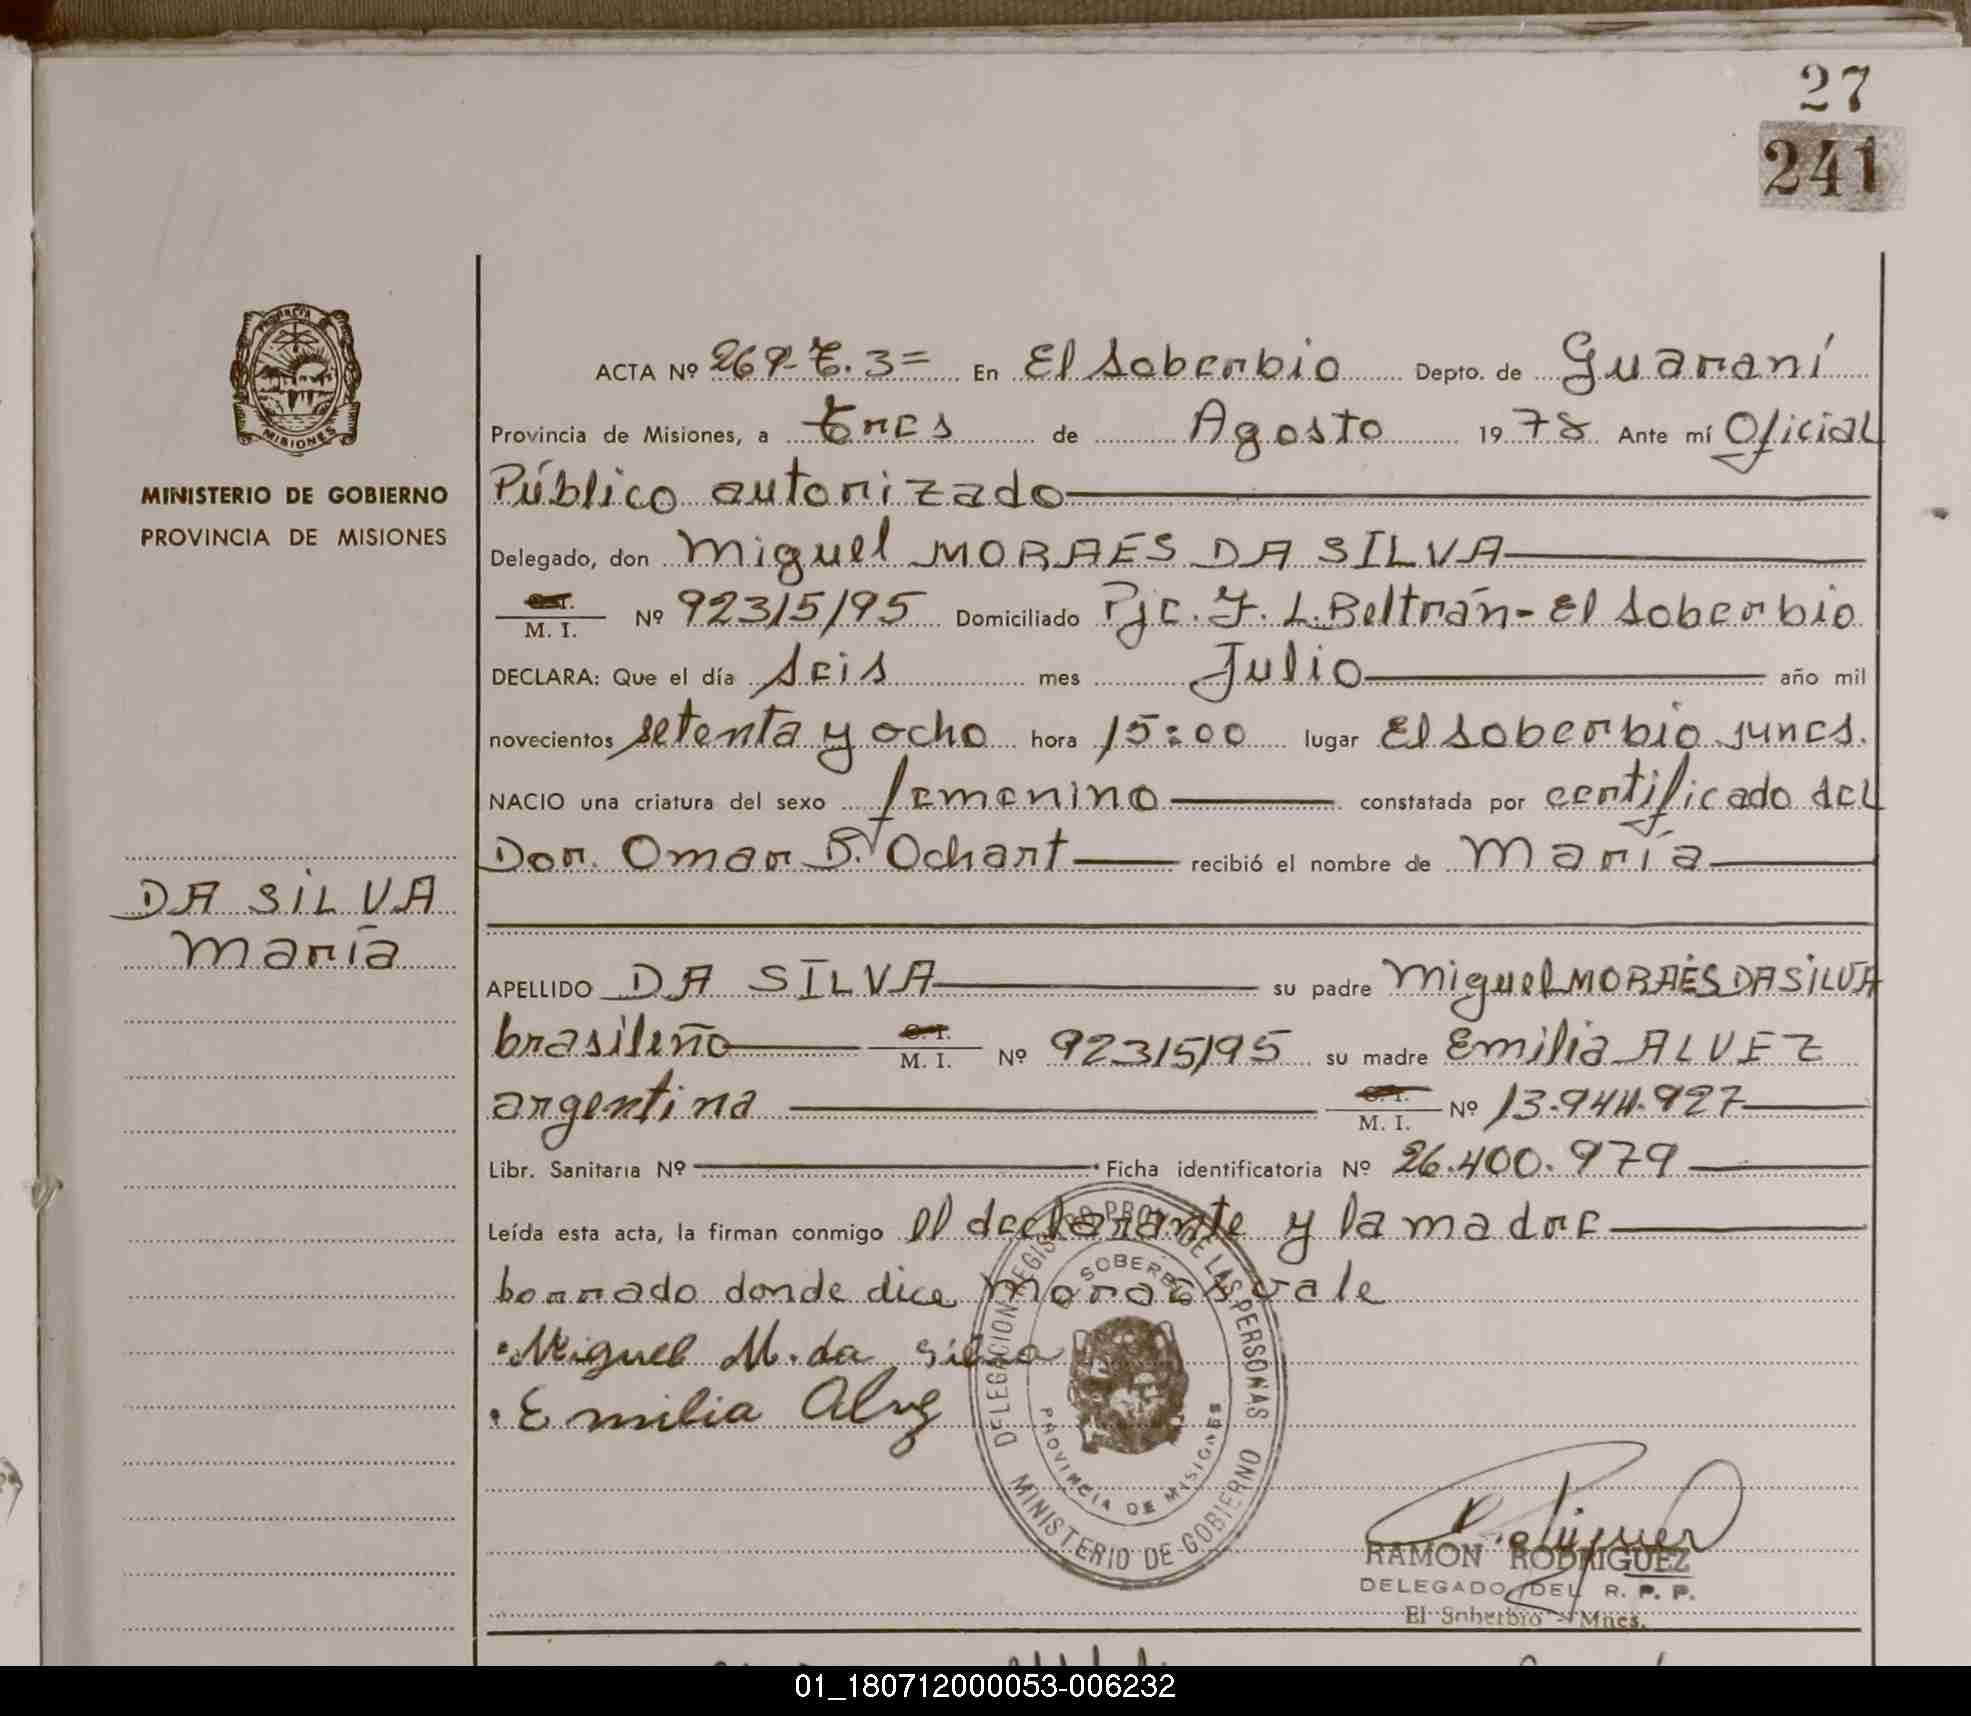 27
241
PROVINCIA
MISIONES
MINISTERIO DE GOBIERNO
PROVINCIA DE MISIONES
DA SILVA
María
ACTA Nº 269-T.3= En El Soberbio Depto. de Guaraní
Provincia de Misiones, a tres de Agosto 1978 Ante mí Oficial
Público autorizado
Delegado, don Miguel MORAES DA SILVA
C.I. M. I. Nº 92315195 Domiciliado Pje. F. L. Beltrán - El Soberbio
DECLARA: Que el día seis mes Julio año mil
novecientos setenta y ocho hora 15:00 lugar El Soberbio
NACIO una criatura del sexo femenino constatada por certificado del
Dor. Omar B. Ochart recibió el nombre de María
APELLIDO DA SILVA su padre Miguel MORAES DA SILVA
brasileño C.I. M. I. Nº 92315195 su madre Emilia ALVEZ
argentina C.I. M. I. Nº 13.944.927
Libr. Sanitaria Nº Ficha identificatoria Nº 26.400.979
Leída esta acta, la firman conmigo el declarante y la madre
borrado donde dice Moraes vale
Miguel M. da Silva
Emilia Alvez
DELEGACION REGISTRO PROV. DE LAS PERSONAS
SOBERBIO
PROVINCIA DE MISIONES
MINISTERIO DE GOBIERNO
RAMON RODRIGUEZ
DELEGADO DEL R. P. P.
El Soberbio - Mnes.
01_180712000053-006232